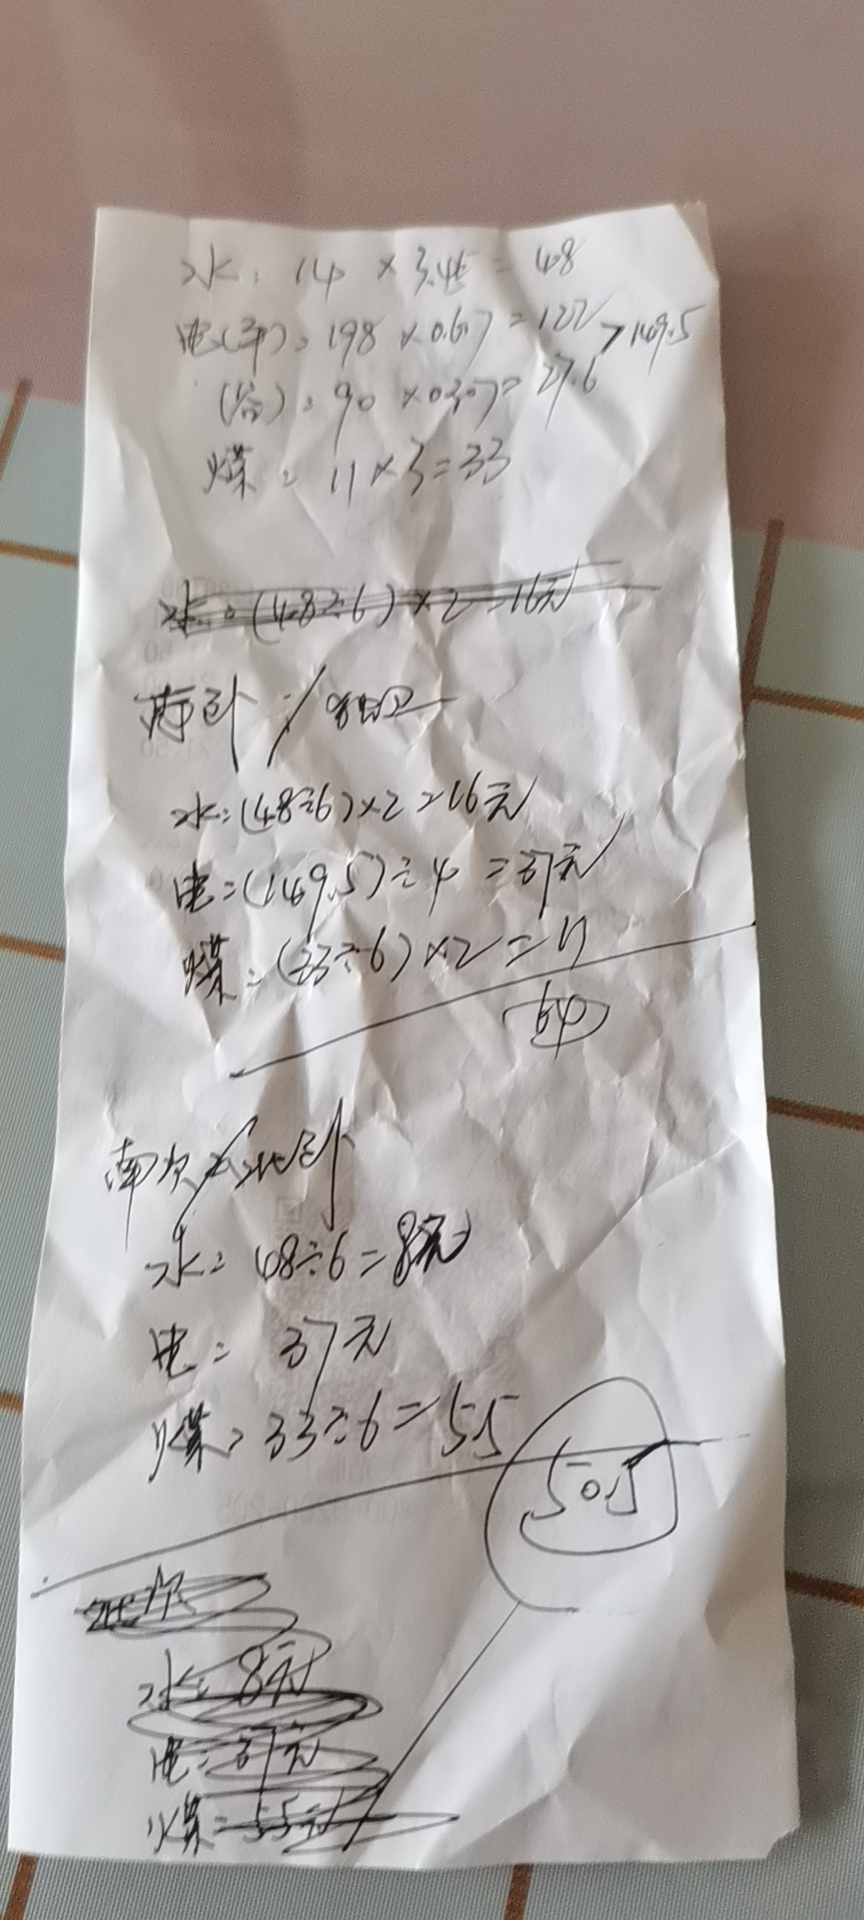 水: 14 × 3.45 = 48
电(平): 198 × 0.617 = 122 > 149.5
(谷): 90 × 0.307 = 27.6
煤: 11 × 3 = 33
水: (48÷6) × 2 = 16元
南卧 /
水: (48÷6) × 2 = 16元
电: (149.5) ÷ 4 = 37元
煤: (33÷6) × 2 = 11
64
南次 / 北卧
水: 48÷6 = 8元
电: 37元
煤: 33÷6 = 5.5
50.5
水: 8元
电: 37元
煤: 5.5元